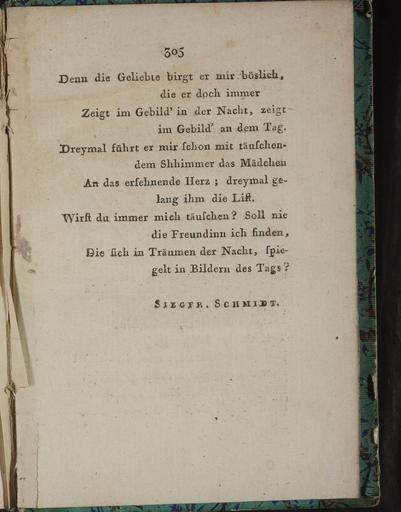 305
Denn die Geliebte birgt er mir böslich,
die er doch immer
Zeigt im Gebild' in der Nacht, zeigt
im Gebild' an dem Tag.
Dreymal führt er mir ſchon mit täuſchen-
dem Shhimmer das Mädchen
An das erſehnende Herz ; dreymal ge-
lang ihm die Liſt.
Wirſt du immer mich täuſchen? Soll nie
die Freundinn ich finden,
Die ſich in Träumen der Nacht, ſpie-
gelt in Bildern des Tags?
SIEGFR. SCHMIDT.